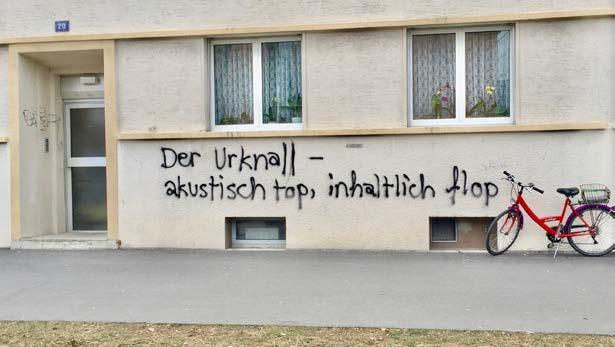 20
Der Urknall –
akustisch top, inhaltlich flop